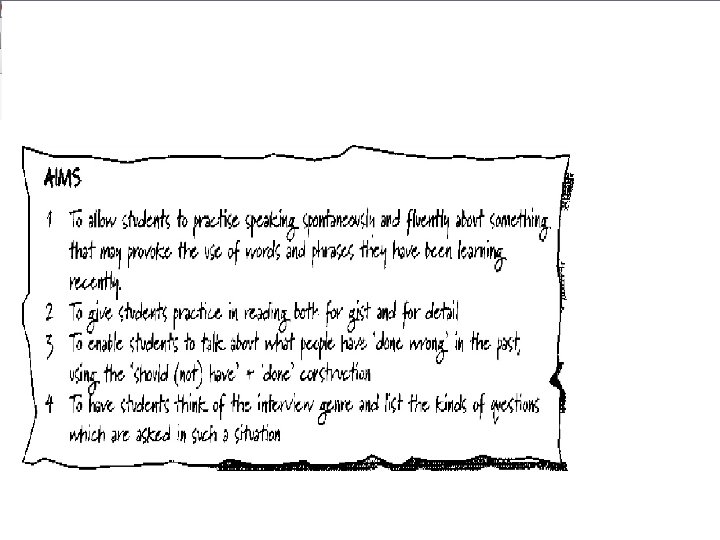 AIMS
1 To allow students to practise speaking spontaneously and fluently about something
that may provoke the use of words and phrases they have been learning
recently.
2 To give students practice in reading both for gist and for detail
3 To enable students to talk about what people have 'done wrong' in the past,
using the 'should (not) have' + 'done' construction
4 To have students think of the interview genre and list the kinds of questions
which are asked in such a situation